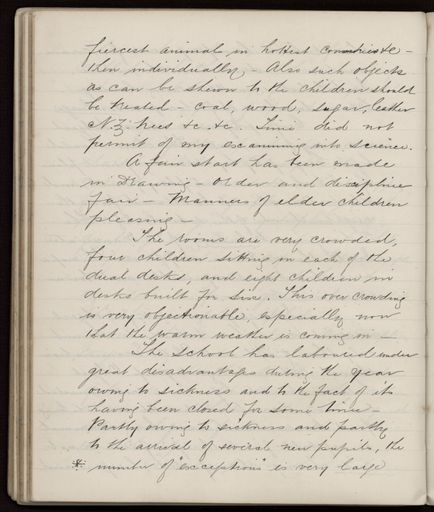 fiercest animal in hottest countries &c -
then individually - Also such objects
as can be shewn to the children should
be treated - coal, wood, sugar, leather
N.Z. trees &c. &c. Time did not
permit of my examining into science.
A fair start has been made
in Drawing - Order and discipline
fair - Manners of elder children
pleasing -
The rooms are very crowded,
four children sitting in each of the
dual desks, and eight children in
desks built for six. This over crowding
is very objectionable, especially now
that the warm weather is coming in -
The School has laboured under
great disadvantages during the year
owing to sickness and to the fact of its
having been closed for some time -
Partly owing to sickness and partly
to the arrival of several new pupils, the
* number of "exceptions" is very large